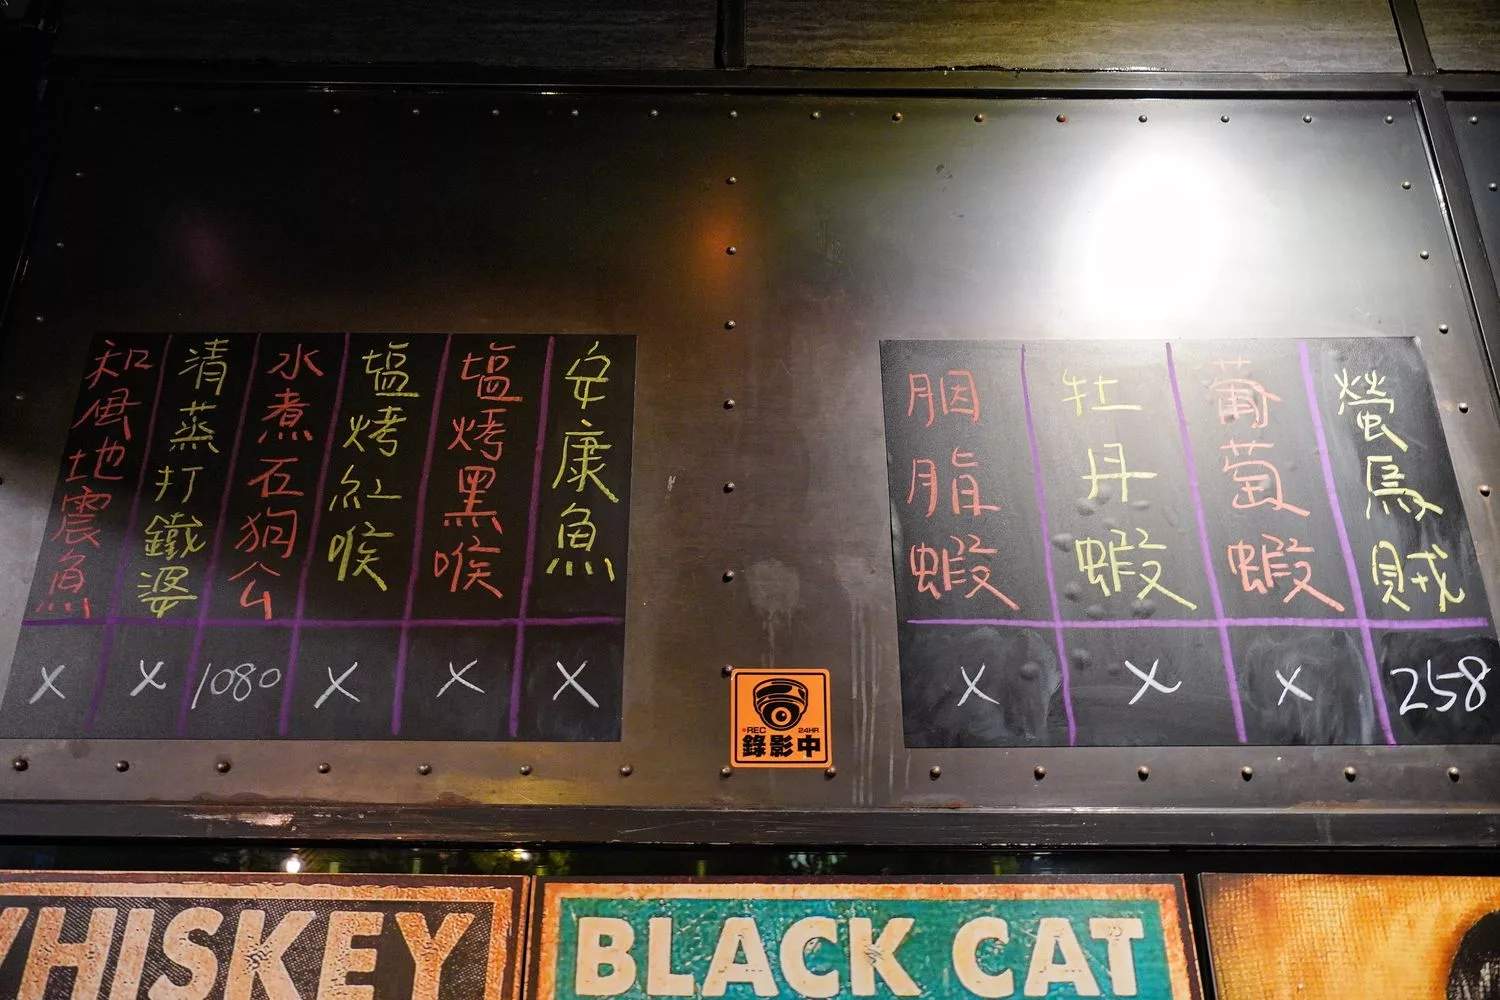 安康魚
X
塩烤黑喉
X
塩烤紅喉
X
水煮石狗公
1080
清蒸打鐵婆
X
和風地震魚
X
螢烏賊
258
葡萄蝦
X
牡丹蝦
X
胭脂蝦
X
REC 24HR
錄影中
WHISKEY
BLACK CAT